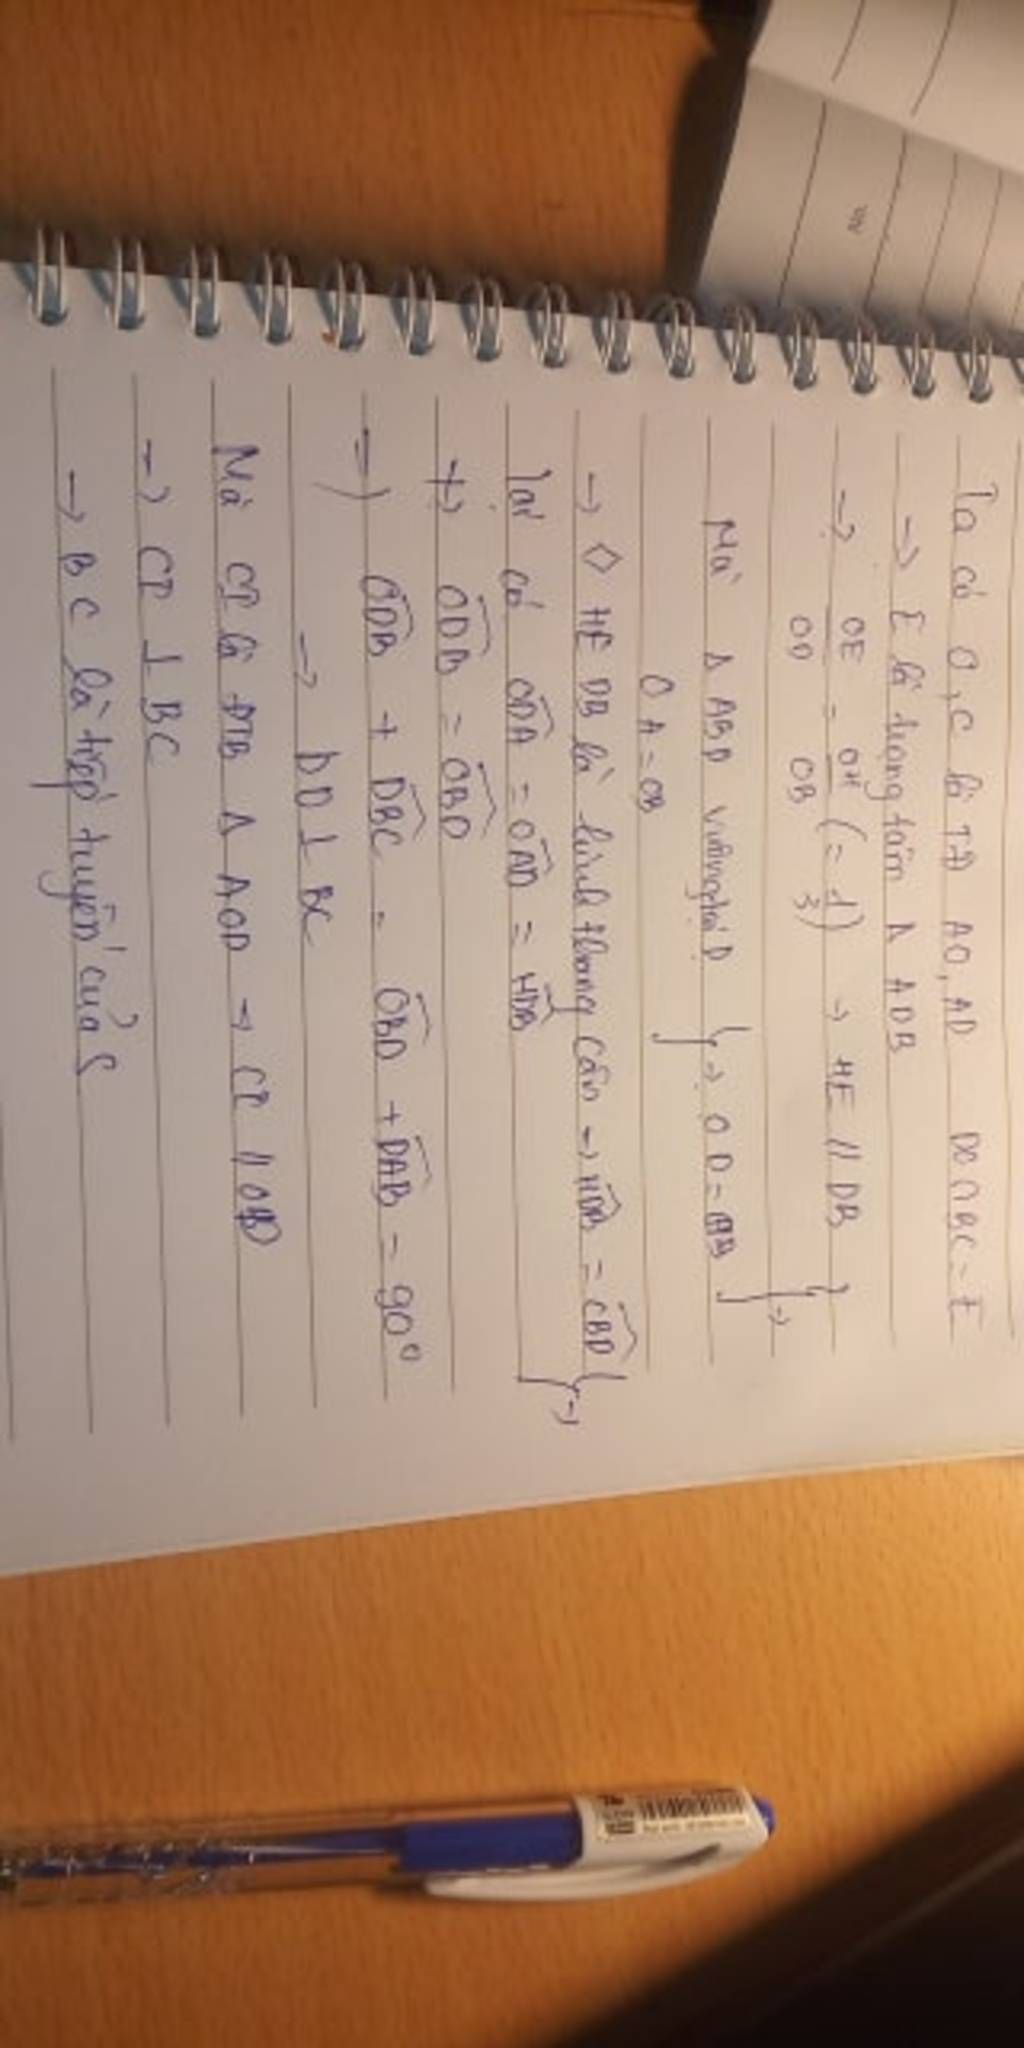 Ta có O, C là TĐ AO, AD DO ∩ BC = E
→ E là trọng tâm Δ ADB
→ OE/OD = OH/OB (= 1/3) → HE // DB } →
Mà Δ ABD vuông tại D } → OD = }
OA = OB
→ ◇ HEDB là hình thang cân → HDB = CBD } →
Lại có ODA = OAD = HDB
+) ODB = OBD
=) ODB + DBC = OBD + DAB = 90°
→ DO ⊥ BC
Mà CP là ĐTB Δ AOD → CP // OD
→ CP ⊥ BC
→ BC là tiếp tuyến của